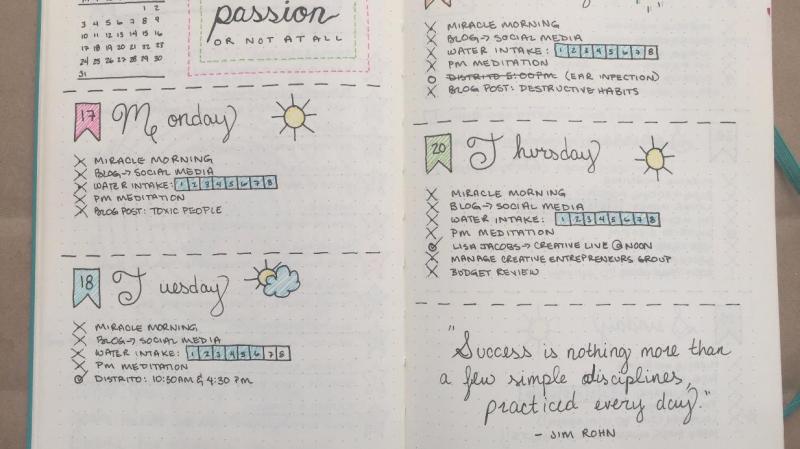 1 2
3 4 5 6 7 8 9
10 11 12 13 14 15 16
17 18 19 20 21 22 23
24 25 26 27 28 29 30
31
passion
OR NOT AT ALL
17 Monday
MIRACLE MORNING
BLOG → SOCIAL MEDIA
WATER INTAKE: 1 2 3 4 5 6 7 8
PM MEDITATION
BLOG POST: TOXIC PEOPLE
18 Tuesday
MIRACLE MORNING
BLOG → SOCIAL MEDIA
WATER INTAKE: 1 2 3 4 5 6 7 8
PM MEDITATION
DISTRITO: 10:30AM & 4:30 PM
MIRACLE MORNING
BLOG → SOCIAL MEDIA
WATER INTAKE: 1 2 3 4 5 6 7 8
PM MEDITATION
DISTRITO 5:00PM (EAR INFECTION)
BLOG POST: DESTRUCTIVE HABITS
20 Thursday
MIRACLE MORNING
BLOG → SOCIAL MEDIA
WATER INTAKE: 1 2 3 4 5 6 7 8
PM MEDITATION
LISA JACOBS → CREATIVE LIVE @ NOON
MANAGE CREATIVE ENTREPRENEURS GROUP
BUDGET REVIEW
"Success is nothing more than
a few simple disciplines,
practiced every day."
- JIM ROHN